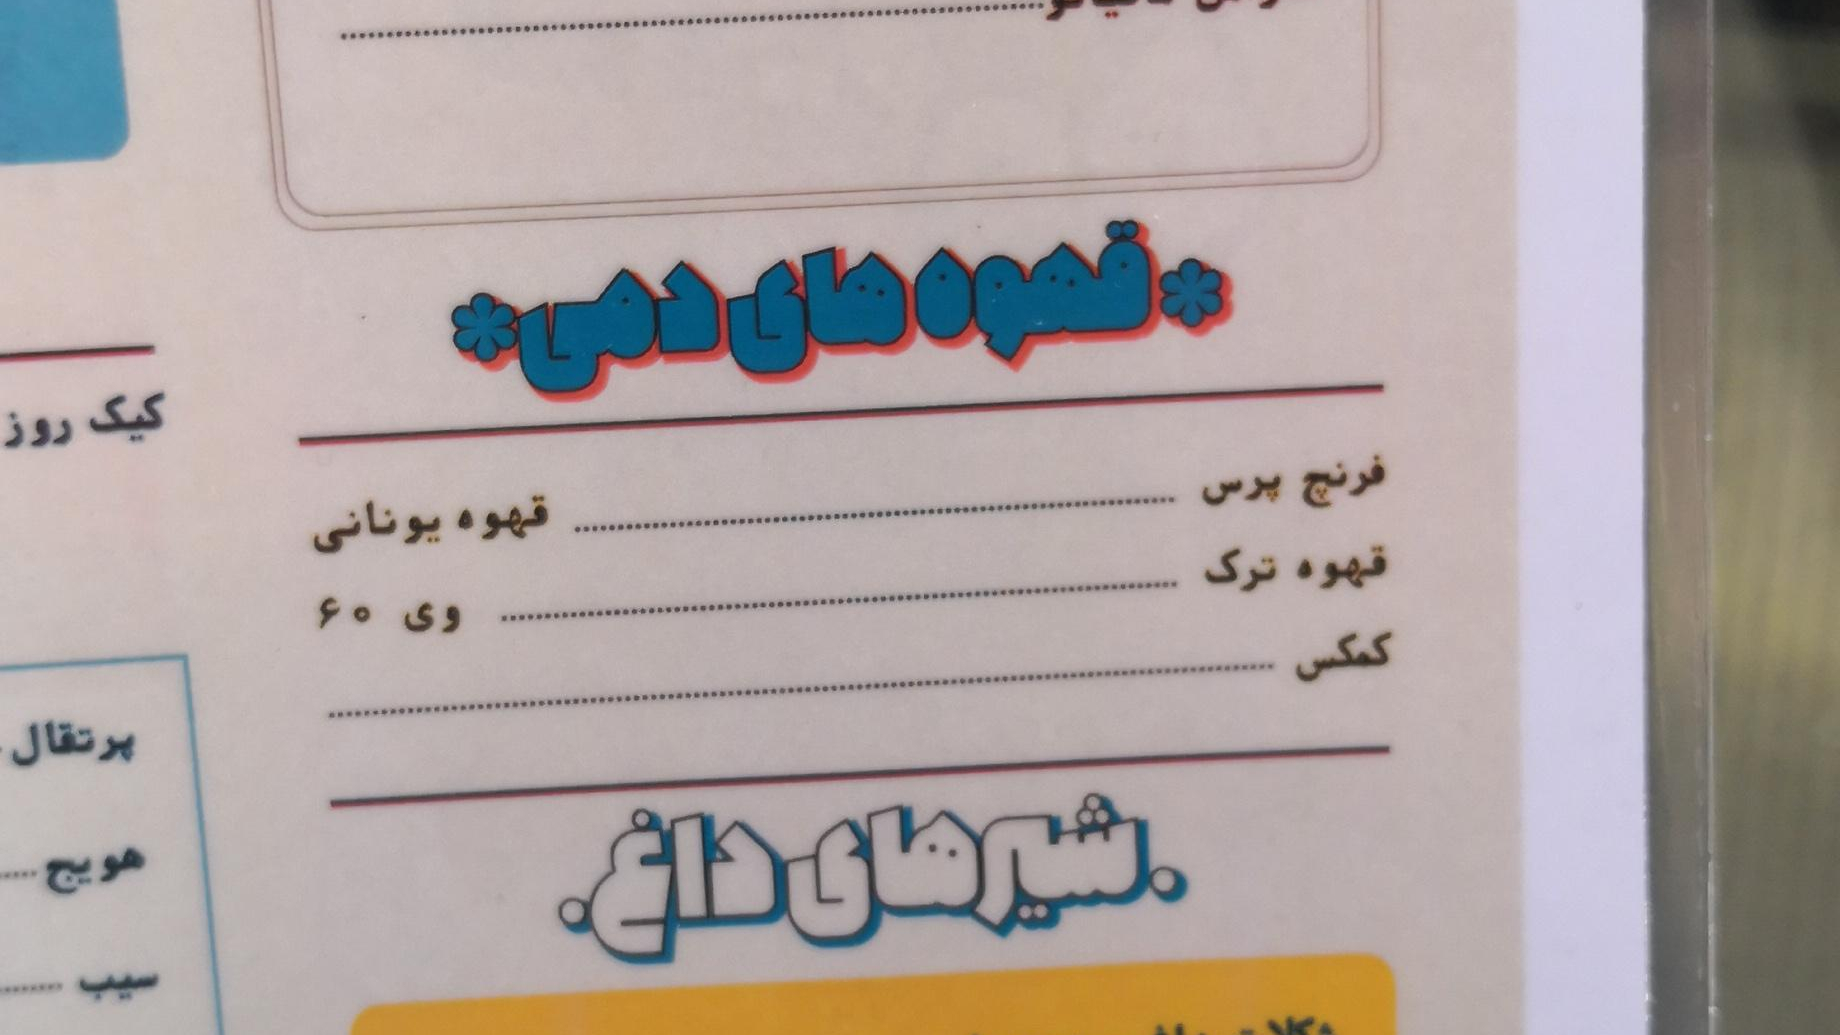 *قهوه های دمی*
فرنچ پرس ........ قهوه یونانی
قهوه ترک ........ وی ۶۰
کمکس ........
.شیرهای داغ.
کیک روز
پرتقال
هویج ....
سیب ....